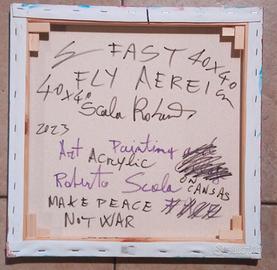 FAST 40x40
FLY AEREI cm
40x40
Scala Roberto
2023
Art Painting
Acrylic
Roberto Scola ON
CANSAS
MAKE PEACE
NOT WAR